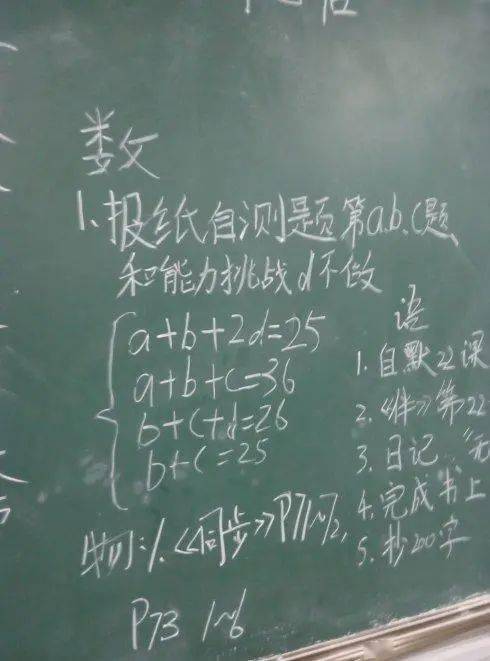 数
1.报纸自测题第a.b.c题
和能力挑战d不做
a+b+2d=25
a+b+c=36
b+c+d=26
b+c=25
物:1.《同步》P71~72,
P73 1~6
语
1.自默22课
2.《伴》第22
3.日记.“无
4.完成书上
5.抄200字